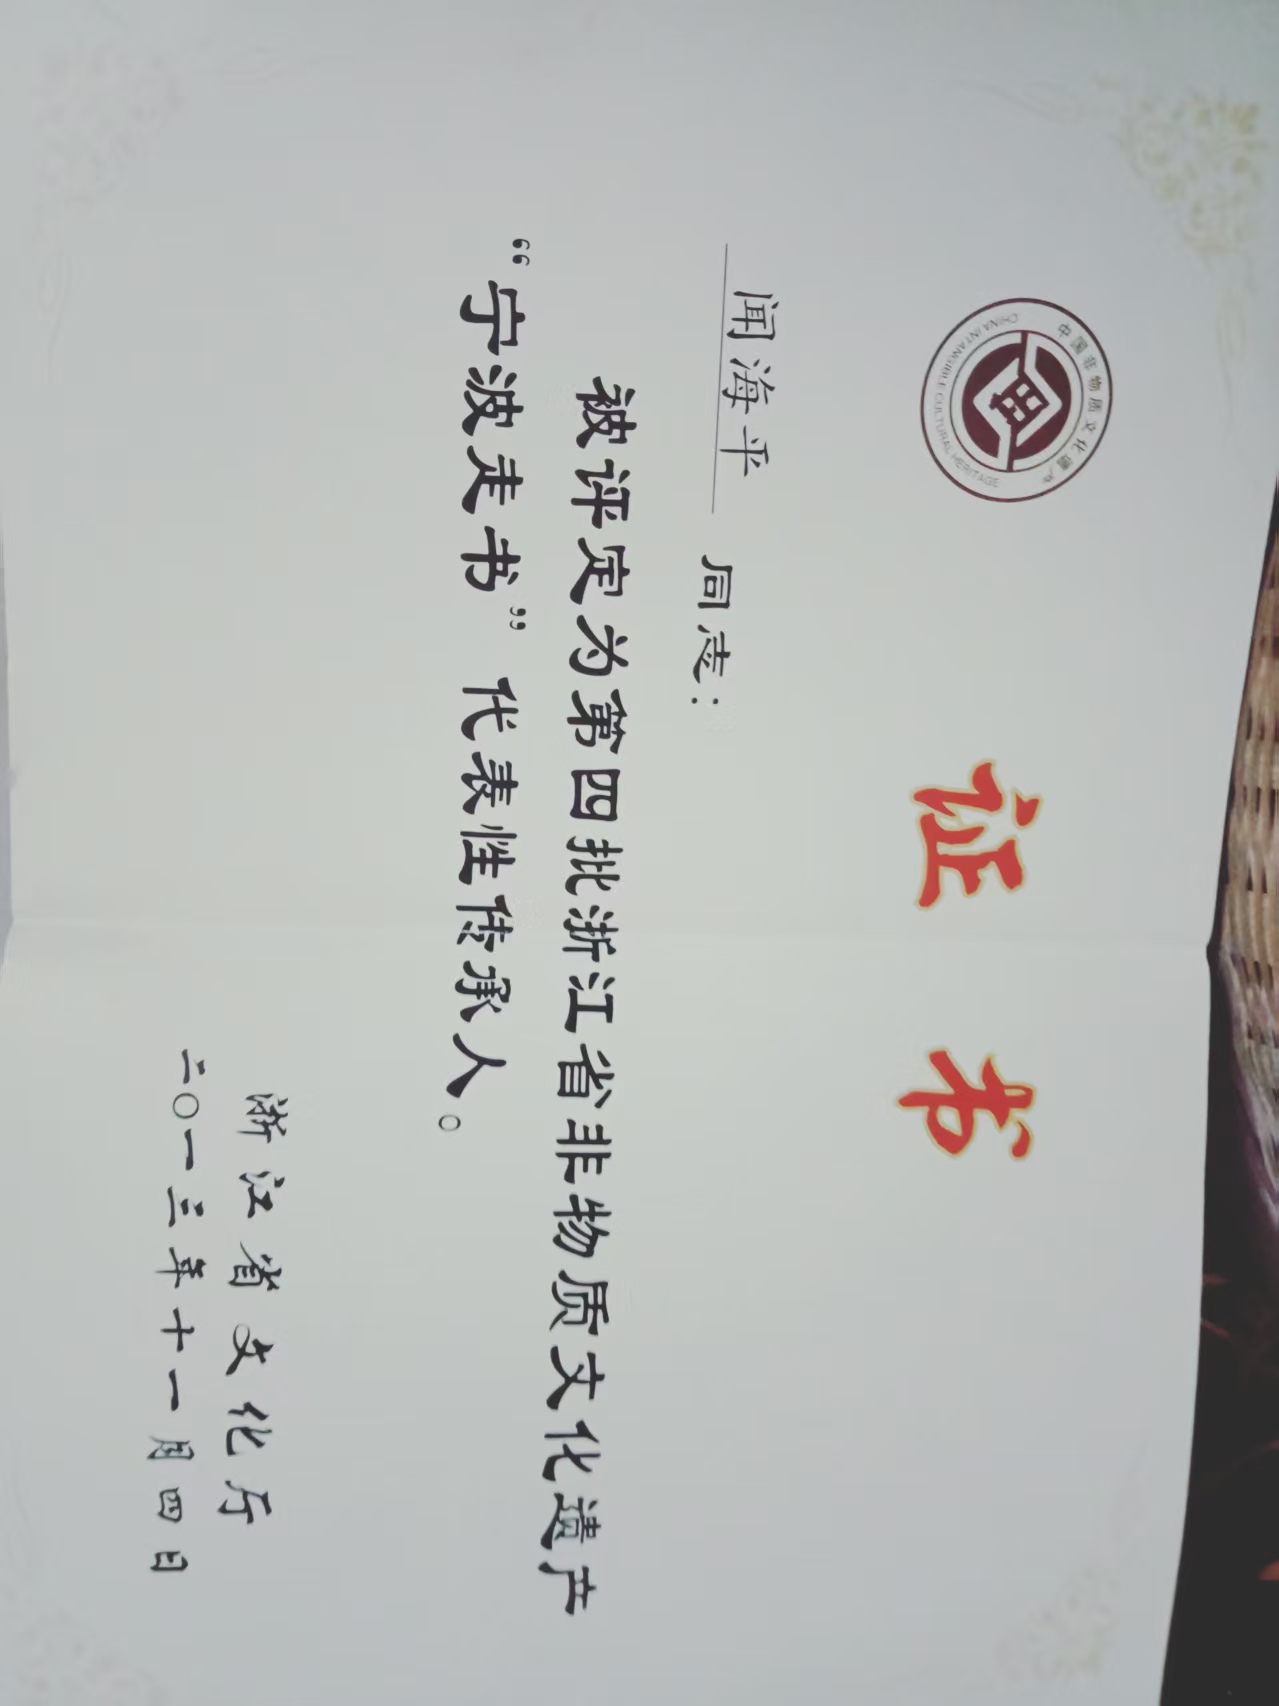 中国非物质文化遗产
CHINA INTANGIBLE CULTURAL HERITAGE
证书
闻海平 同志：
被评定为第四批浙江省非物质文化遗产
“宁波走书”代表性传承人。
浙江省文化厅
二〇一三年十一月四日